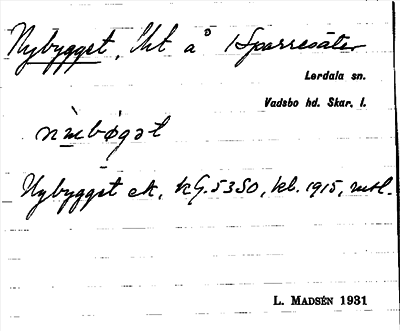 Nybygget, lht å Sparresäter
Lerdala sn.
Vadsbo hd. Skar. l.
nỳbøgət
Nybygget ek, kG. 5350, kl. 1915, mtl.
L. MADSÉN 1931